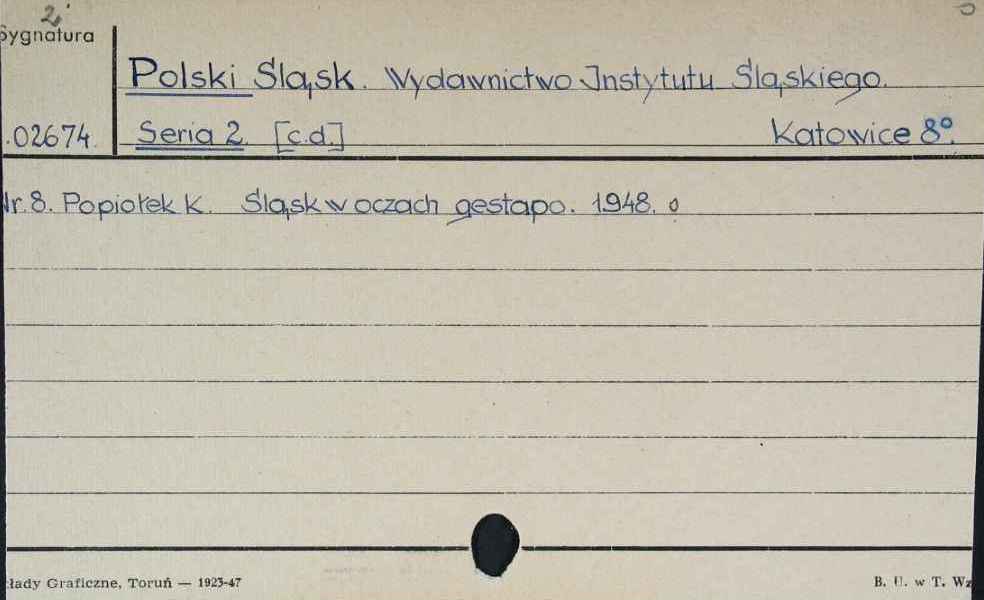 2.
Sygnatura
Polski Śląsk. Wydawnictwo Instytutu Śląskiego.
.02674. Seria 2. [c.d.] Katowice 8°.
Nr. 8. Popiołek K. Śląsk w oczach gestapo. 1948. o
kłady Graficzne, Toruń — 1923-47 B. U. w T. Wz